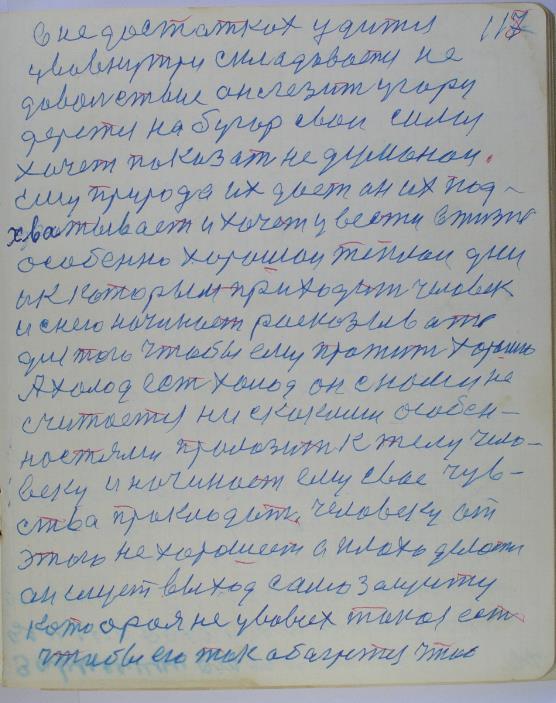 117
в недостатках удится
увовнутри складовается не
довольствие он лезит у гору
дерется на бугор свои силы
хочет показат не думаючи.
Ему природа их дает он их под-
хватывает и хочет увести в жизнь
особенно хорошои теплаи дни
к которым приходит человек
и с него начинает росказывать
для того чтобы ему прожит хорошо
А холод ест холод он с ками не
считается ни с какими особен-
ностями пролозит к телу чело-
веку и начинает ему свое чув-
ства прокладыт. Человеку от
этого не хорошеет а плохо делаит
он ищет выход само защиту
которая не увовсех такая ест
чтобы его так обагрется что